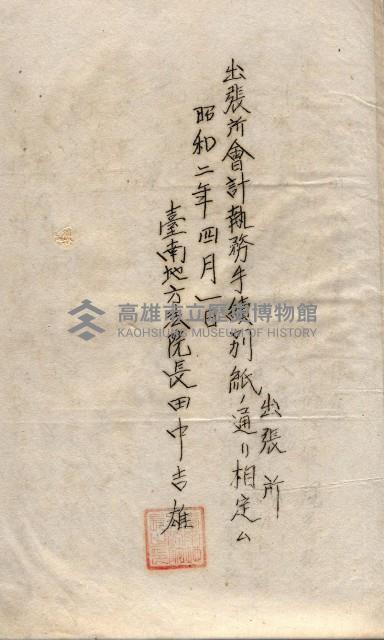 出張所
出張所會計執務手續別紙ノ通リ相定ム
昭和二年四月一日
臺南地方法院長田中吉雄
高雄市立歷史博物館
KAOHSIUNG MUSEUM OF HISTORY